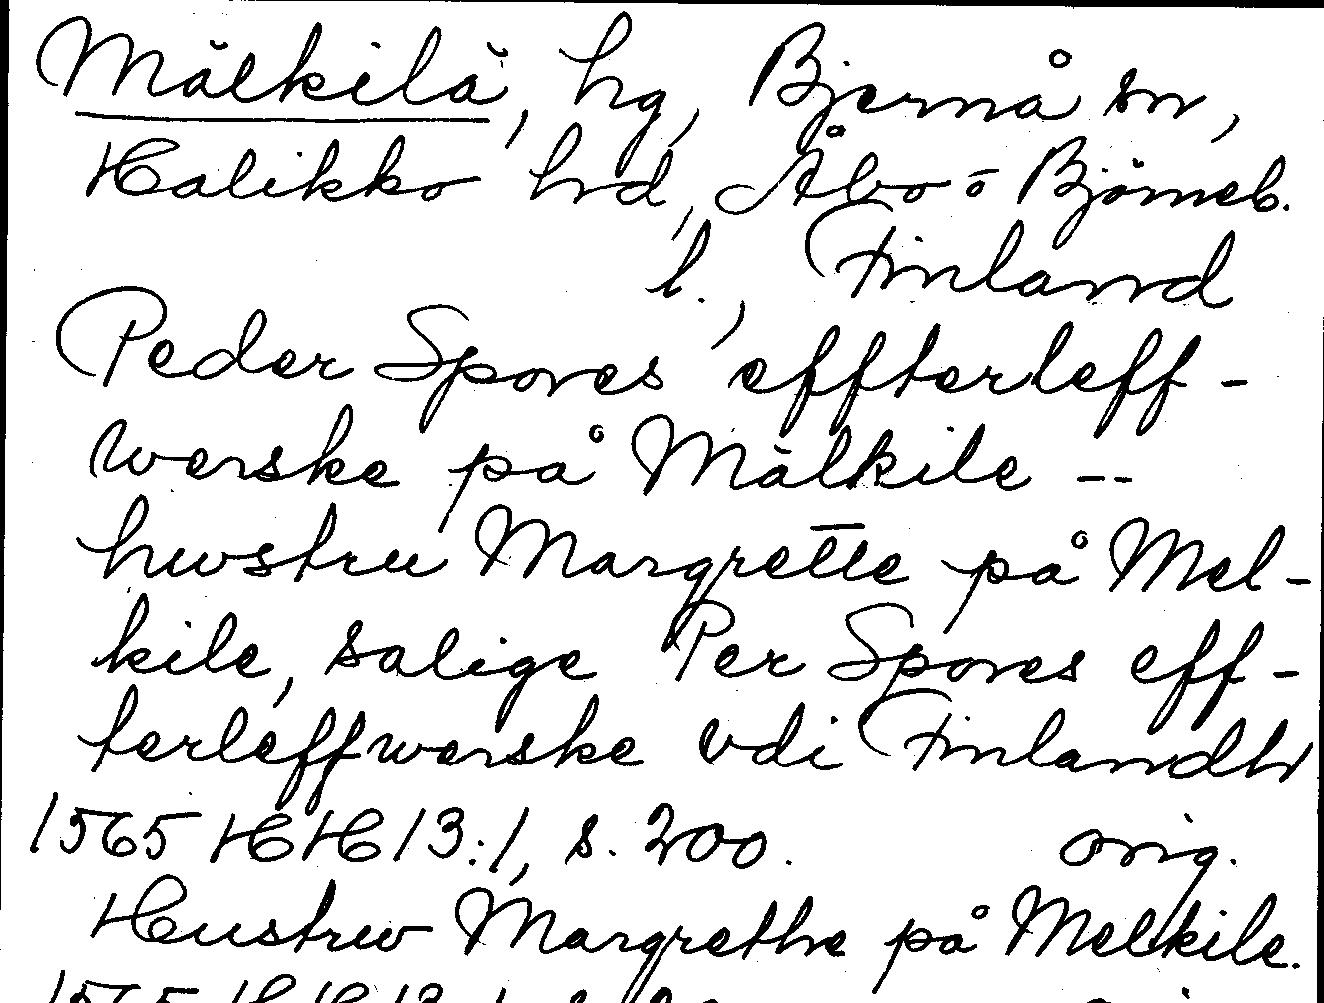 Mälkilä, hg, Bjernå sn,
Halikko hrd, Åbo o Björneb.
l., Finland
Peder Spores effterleff-
werske på Mälkile --
hwstru Margrette på Mel-
kile, salige Per Spores eff-
terleffwerske vdi Finlandh
1565 HH 13:1, s. 200. orig.
Hustrw Margrethe på Melkile.
1565 HH 13:1, s.